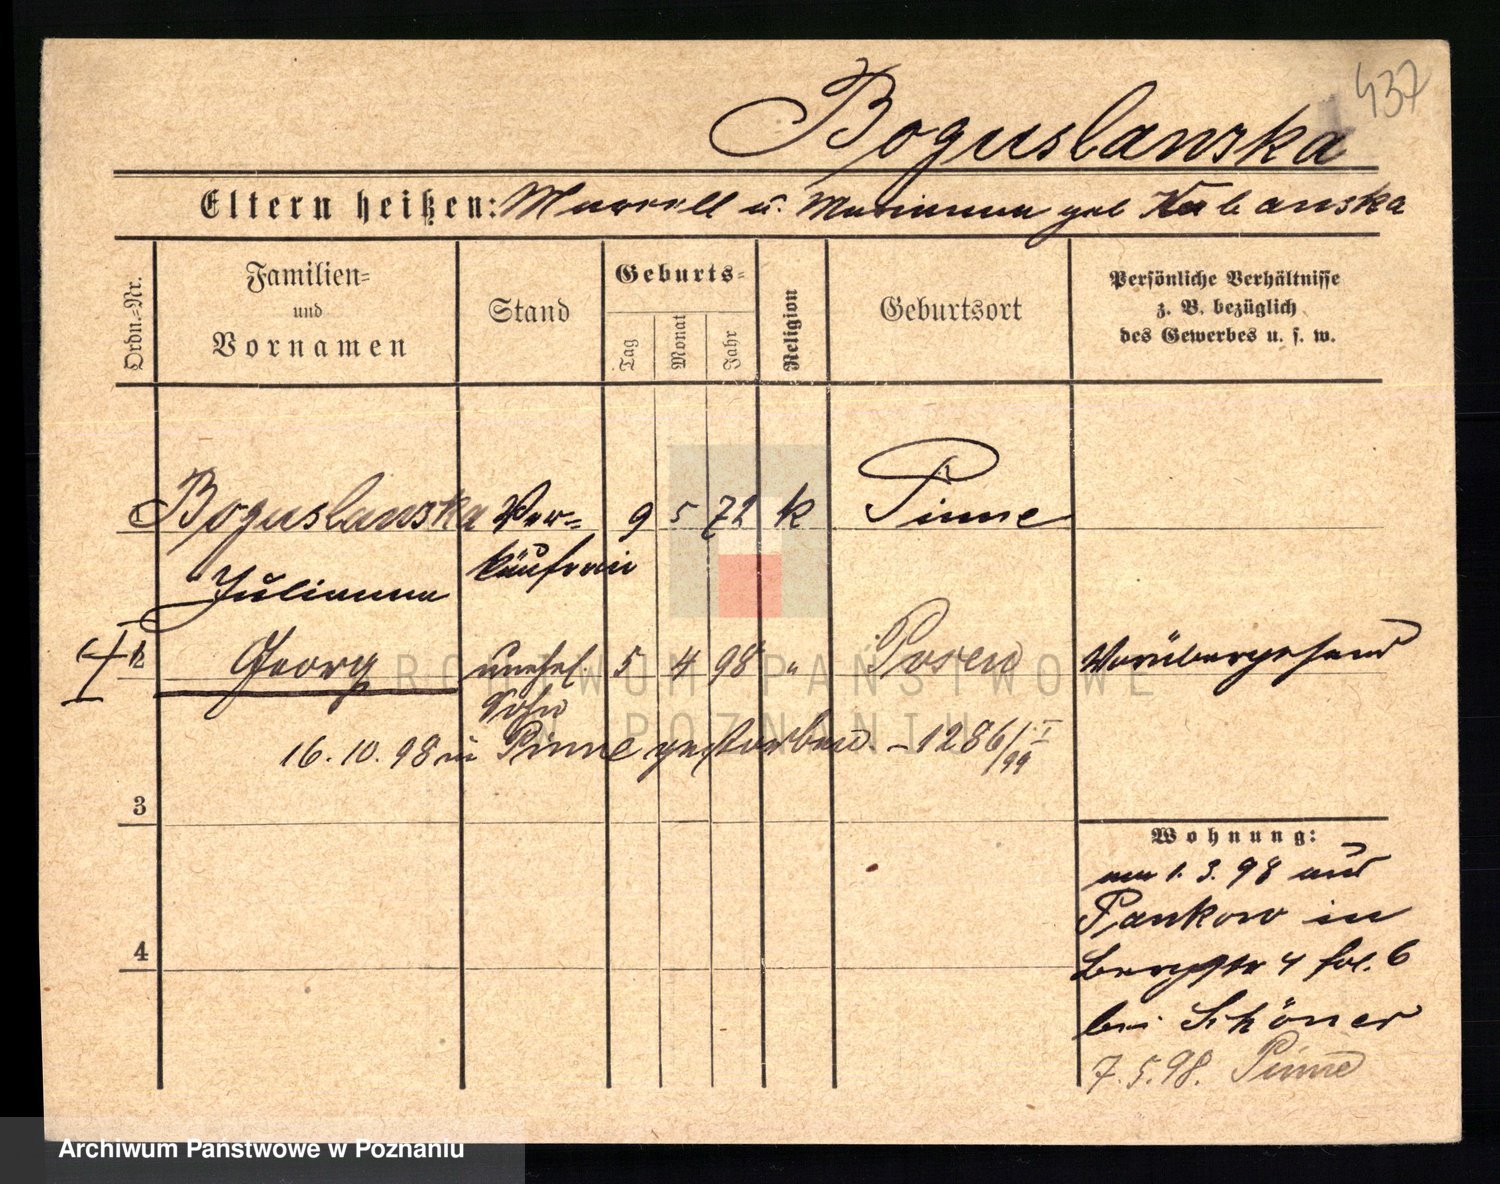 437
Boguslawska
Eltern heißen: Marcell u. Marianna geb Kubanska
Ordn.-Nr.
Familien-
und
Vornamen
Stand
Geburts-
Tag
Monat
Jahr
Religion
Geburtsort
Persönliche Verhältnisse
z. B. bezüglich
des Gewerbes u. s. w.
Boguslawska Ver- 9 5 72 k Pinne
Julianna käuferin
2 Georg unehel. 5 4 98 " Posen Vorübergehend
Sohn
16.10.98 in Pinne gestorben. - 1286/I 99
3
Wohnung:
am 1. 3. 98 aus
Pankow in
Bergstr 4 bei Schöner
4
7.5.98. Pinne
ARCHIWUM PAŃSTWOWE
W POZNANIU
Archiwum Państwowe w Poznaniu